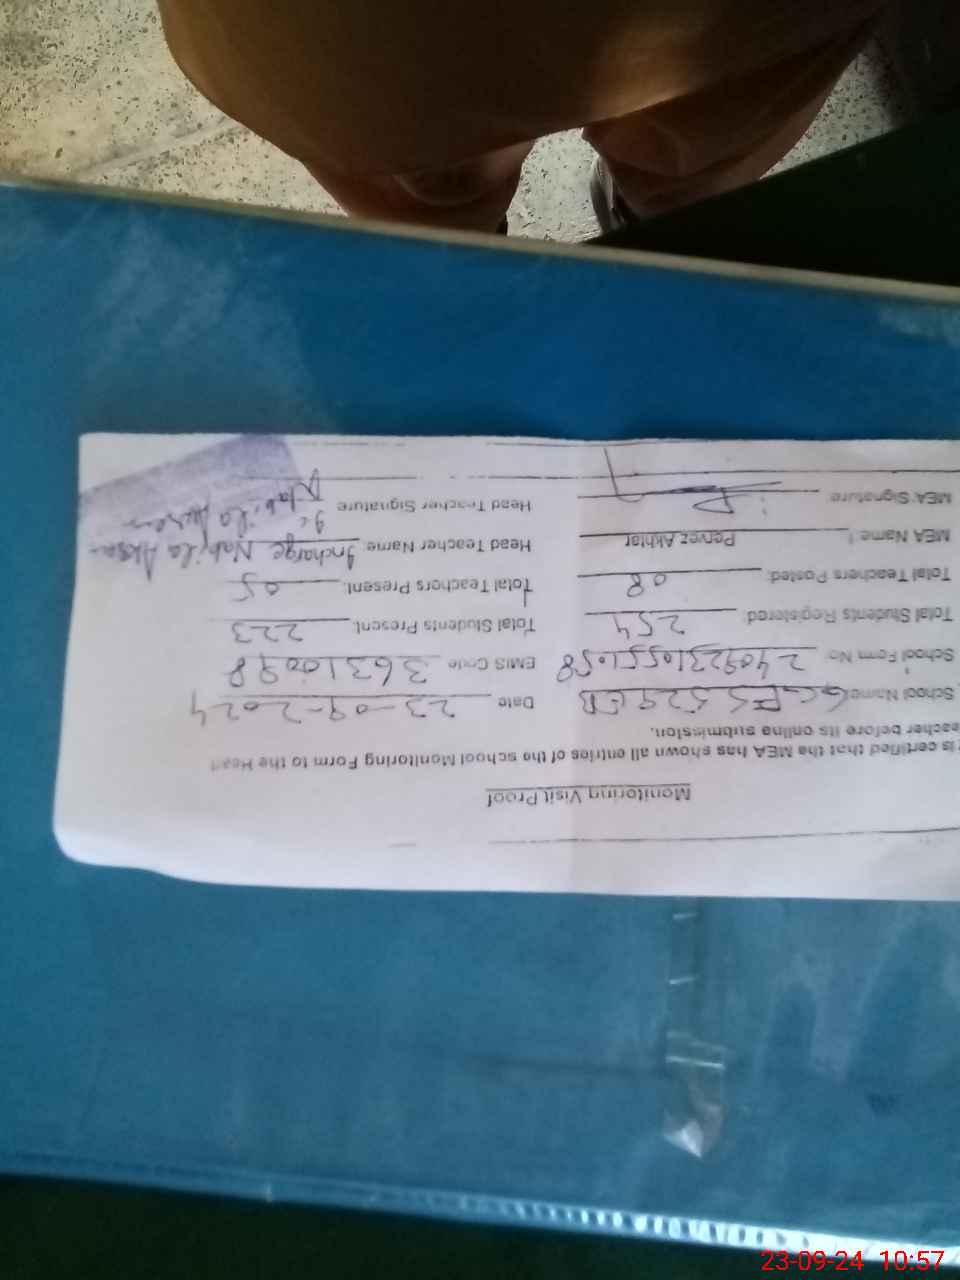 Monitoring Visit Proof
is certified that the MEA has shown all entries of the school Monitoring Form to the Head
eacher before its online submission.
School Name GGES 529 EB Date 23-09-2024
School Form No: EMIS Code 36310098
Total Students Registered: 254 Total Students Present: 223
Total Teachers Posted: 08 Total Teachers Present: 05
MEA Name: Pervez Akhtar Head Teacher Name: Incharge Nabila
MEA Signature Head Teacher Signature Nabila
23-09-24 10:57